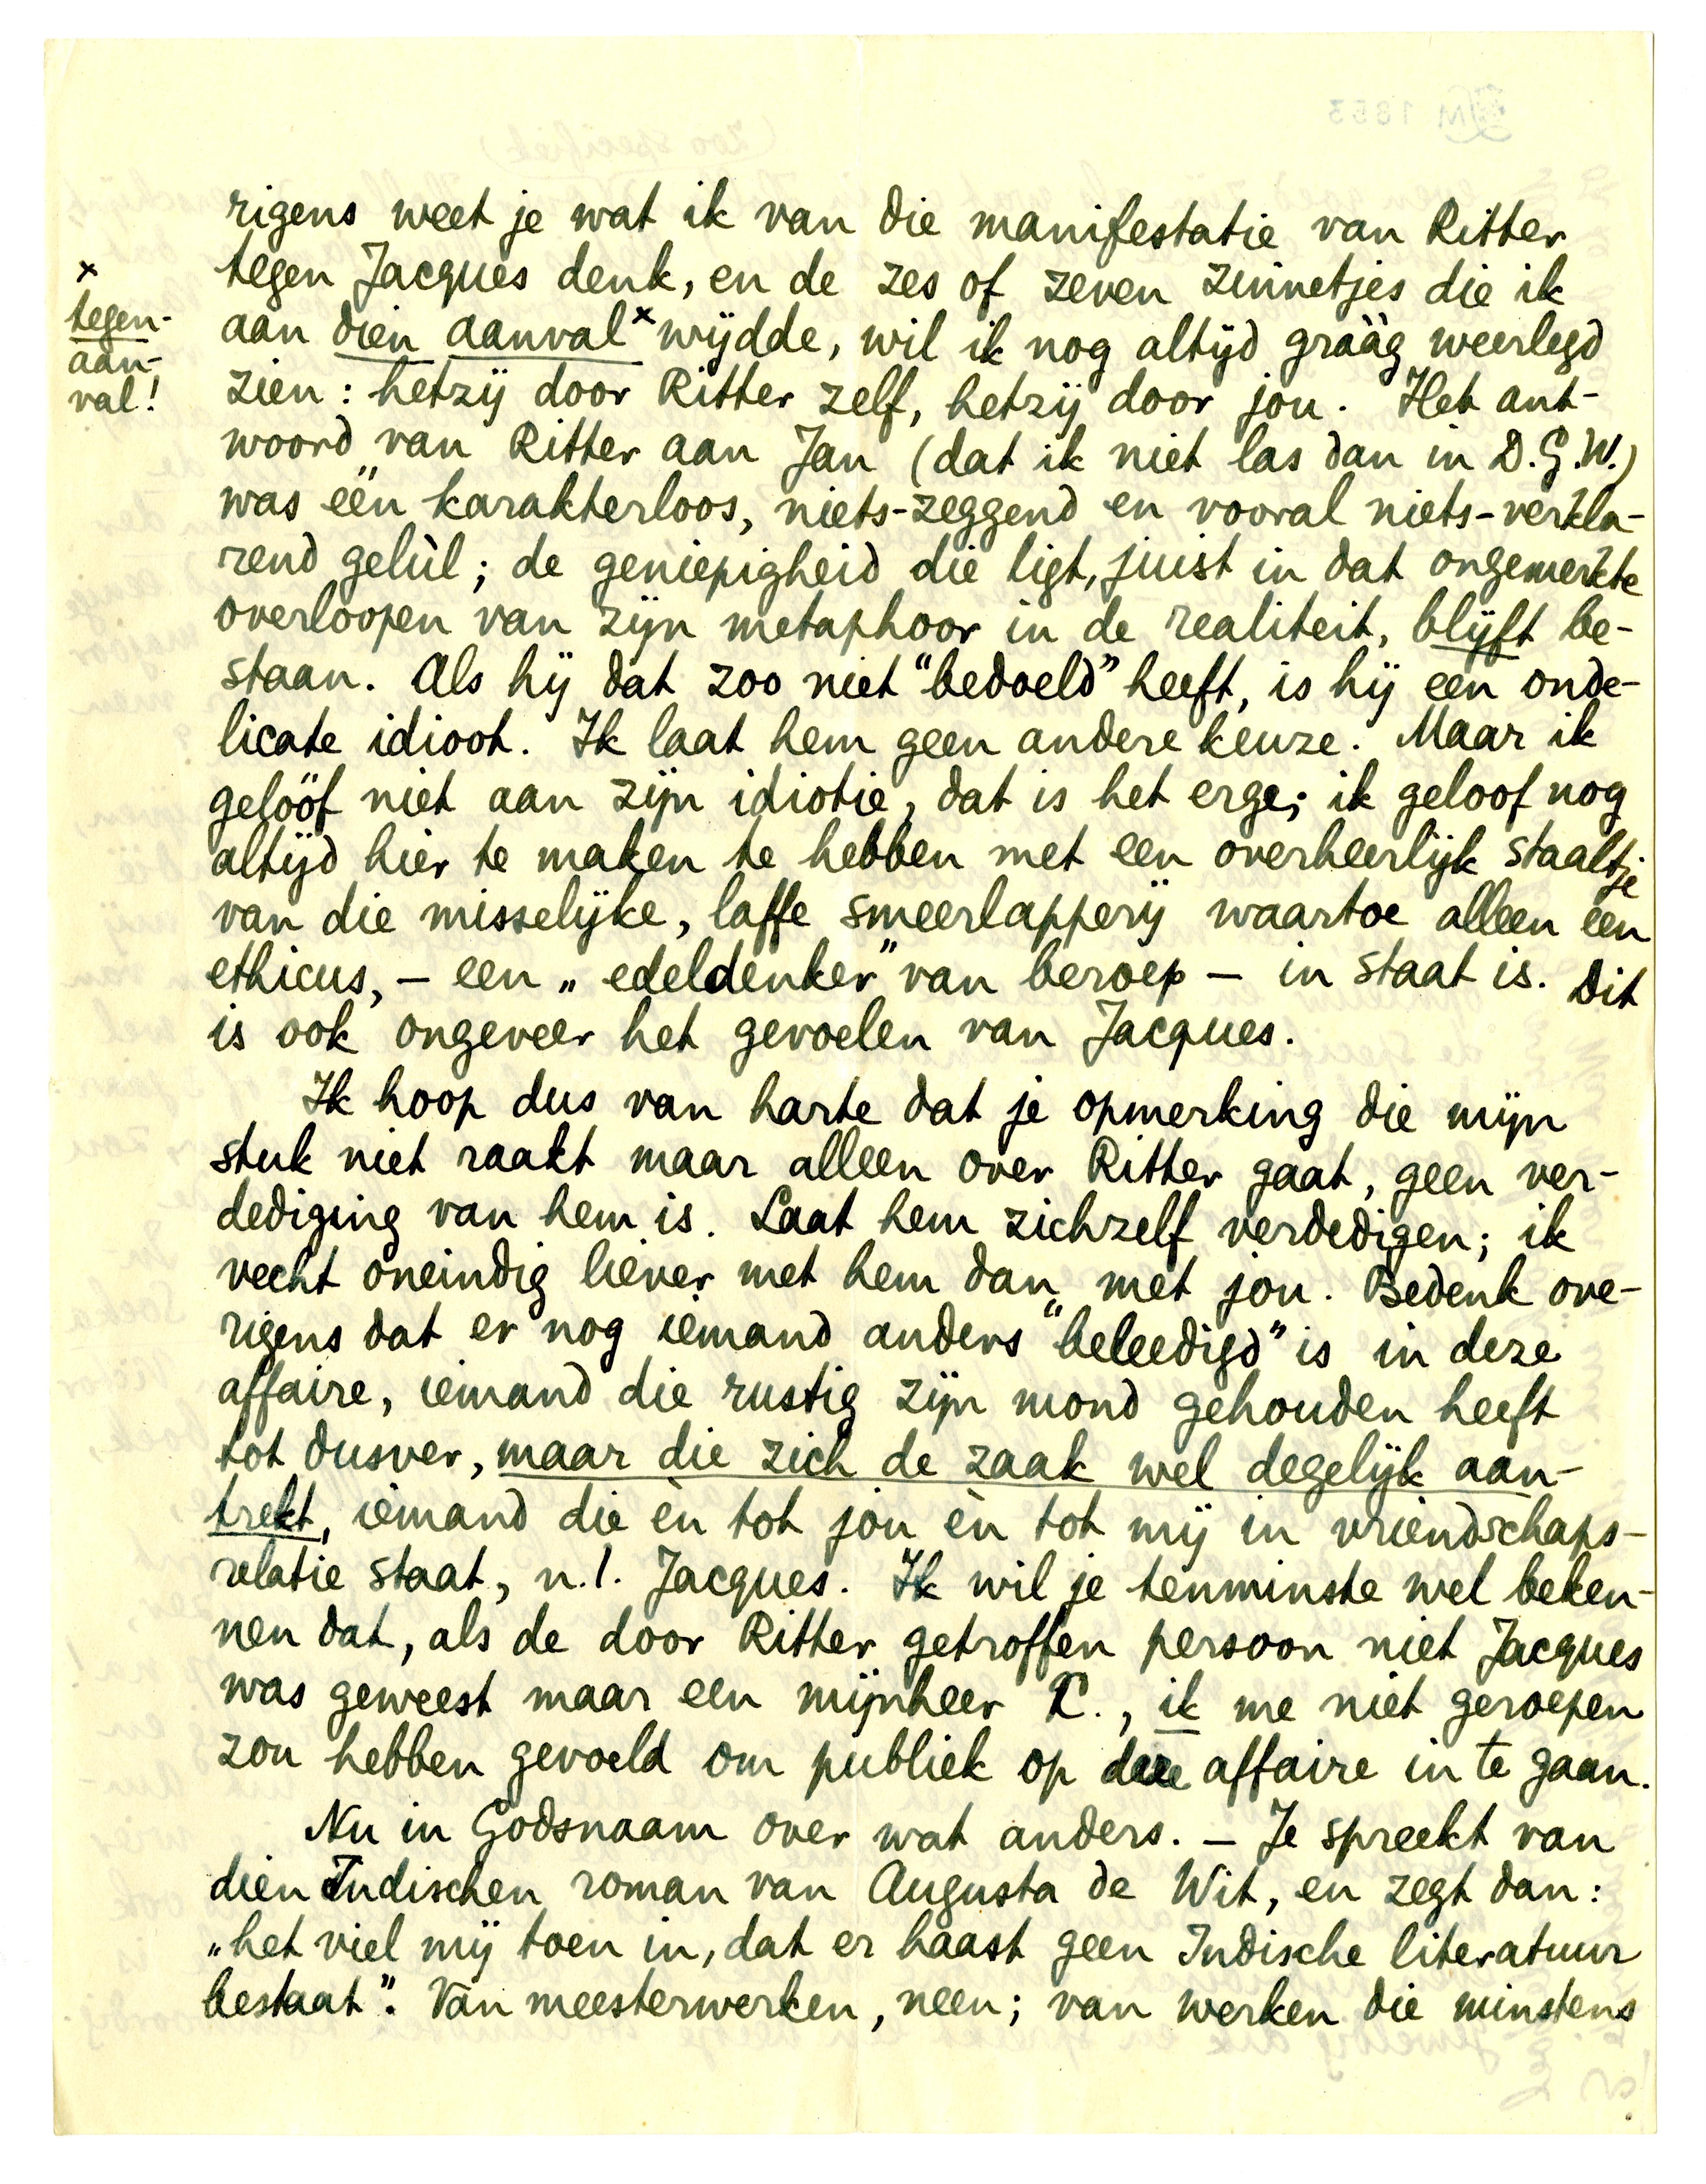 rigens weet je wat ik van die manifestatie van Ritter
tegen Jacques denk, en de zes of zeven zinnetjes die ik
aan dien aanval x wijdde, wil ik nog altijd grààg weerlegd
x
tegen-
aan-
val!
zien: hetzij door Ritter zelf, hetzij door jou. Het ant-
woord van Ritter aan Jan (dat ik niet las dan in D.G.W.)
was één karakterloos, niets-zeggend en vooral niets-verkla-
rend gelùl; de geniepigheid die ligt, juist in dat ongemerkte
overloopen van zijn metaphoor in de realiteit, blijft be-
staan. Als hij dat zoo niet "bedoeld" heeft, is hij een onde-
licate idioot. Ik laat hem geen andere keuze. Maar ik
gelóóf niet aan zijn idiotie, dat is het erge; ik geloof nog
altijd hier te maken te hebben met een overheerlijk staaltje
van die misselijke, laffe smeerlapperij waartoe alleen een
ethicus, – een „edeldenker" van beroep – in staat is. Dit
is ook ongeveer het gevoelen van Jacques.
Ik hoop dus van harte dat je opmerking die mijn
stuk niet raakt maar alleen over Ritter gaat, geen ver-
dediging van hem is. Laat hem zichzelf verdedigen; ik
vecht oneindig liever met hem dan met jou. Bedenk ove-
rigens dat er nog iemand anders "beleedigd" is in deze
affaire, iemand die rustig zijn mond gehouden heeft
tot dusver, maar die zich de zaak wel degelijk aan-
trekt, iemand die èn tot jou èn tot mij in vriendschaps-
relatie staat, n.l. Jacques. Ik wil je tenminste wel beken-
nen dat, als de door Ritter getroffen persoon niet Jacques
was geweest maar een mijnheer X., ik me niet geroepen
zou hebben gevoeld om publiek op deze affaire in te gaan.
Nu in Godsnaam over wat anders. – Je spreekt van
dien Indischen roman van Augusta de Wit, en zegt dan:
„het viel mij toen in, dat er haast geen Indische literatuur
bestaat". Van meesterwerken, neen; van werken die minstens